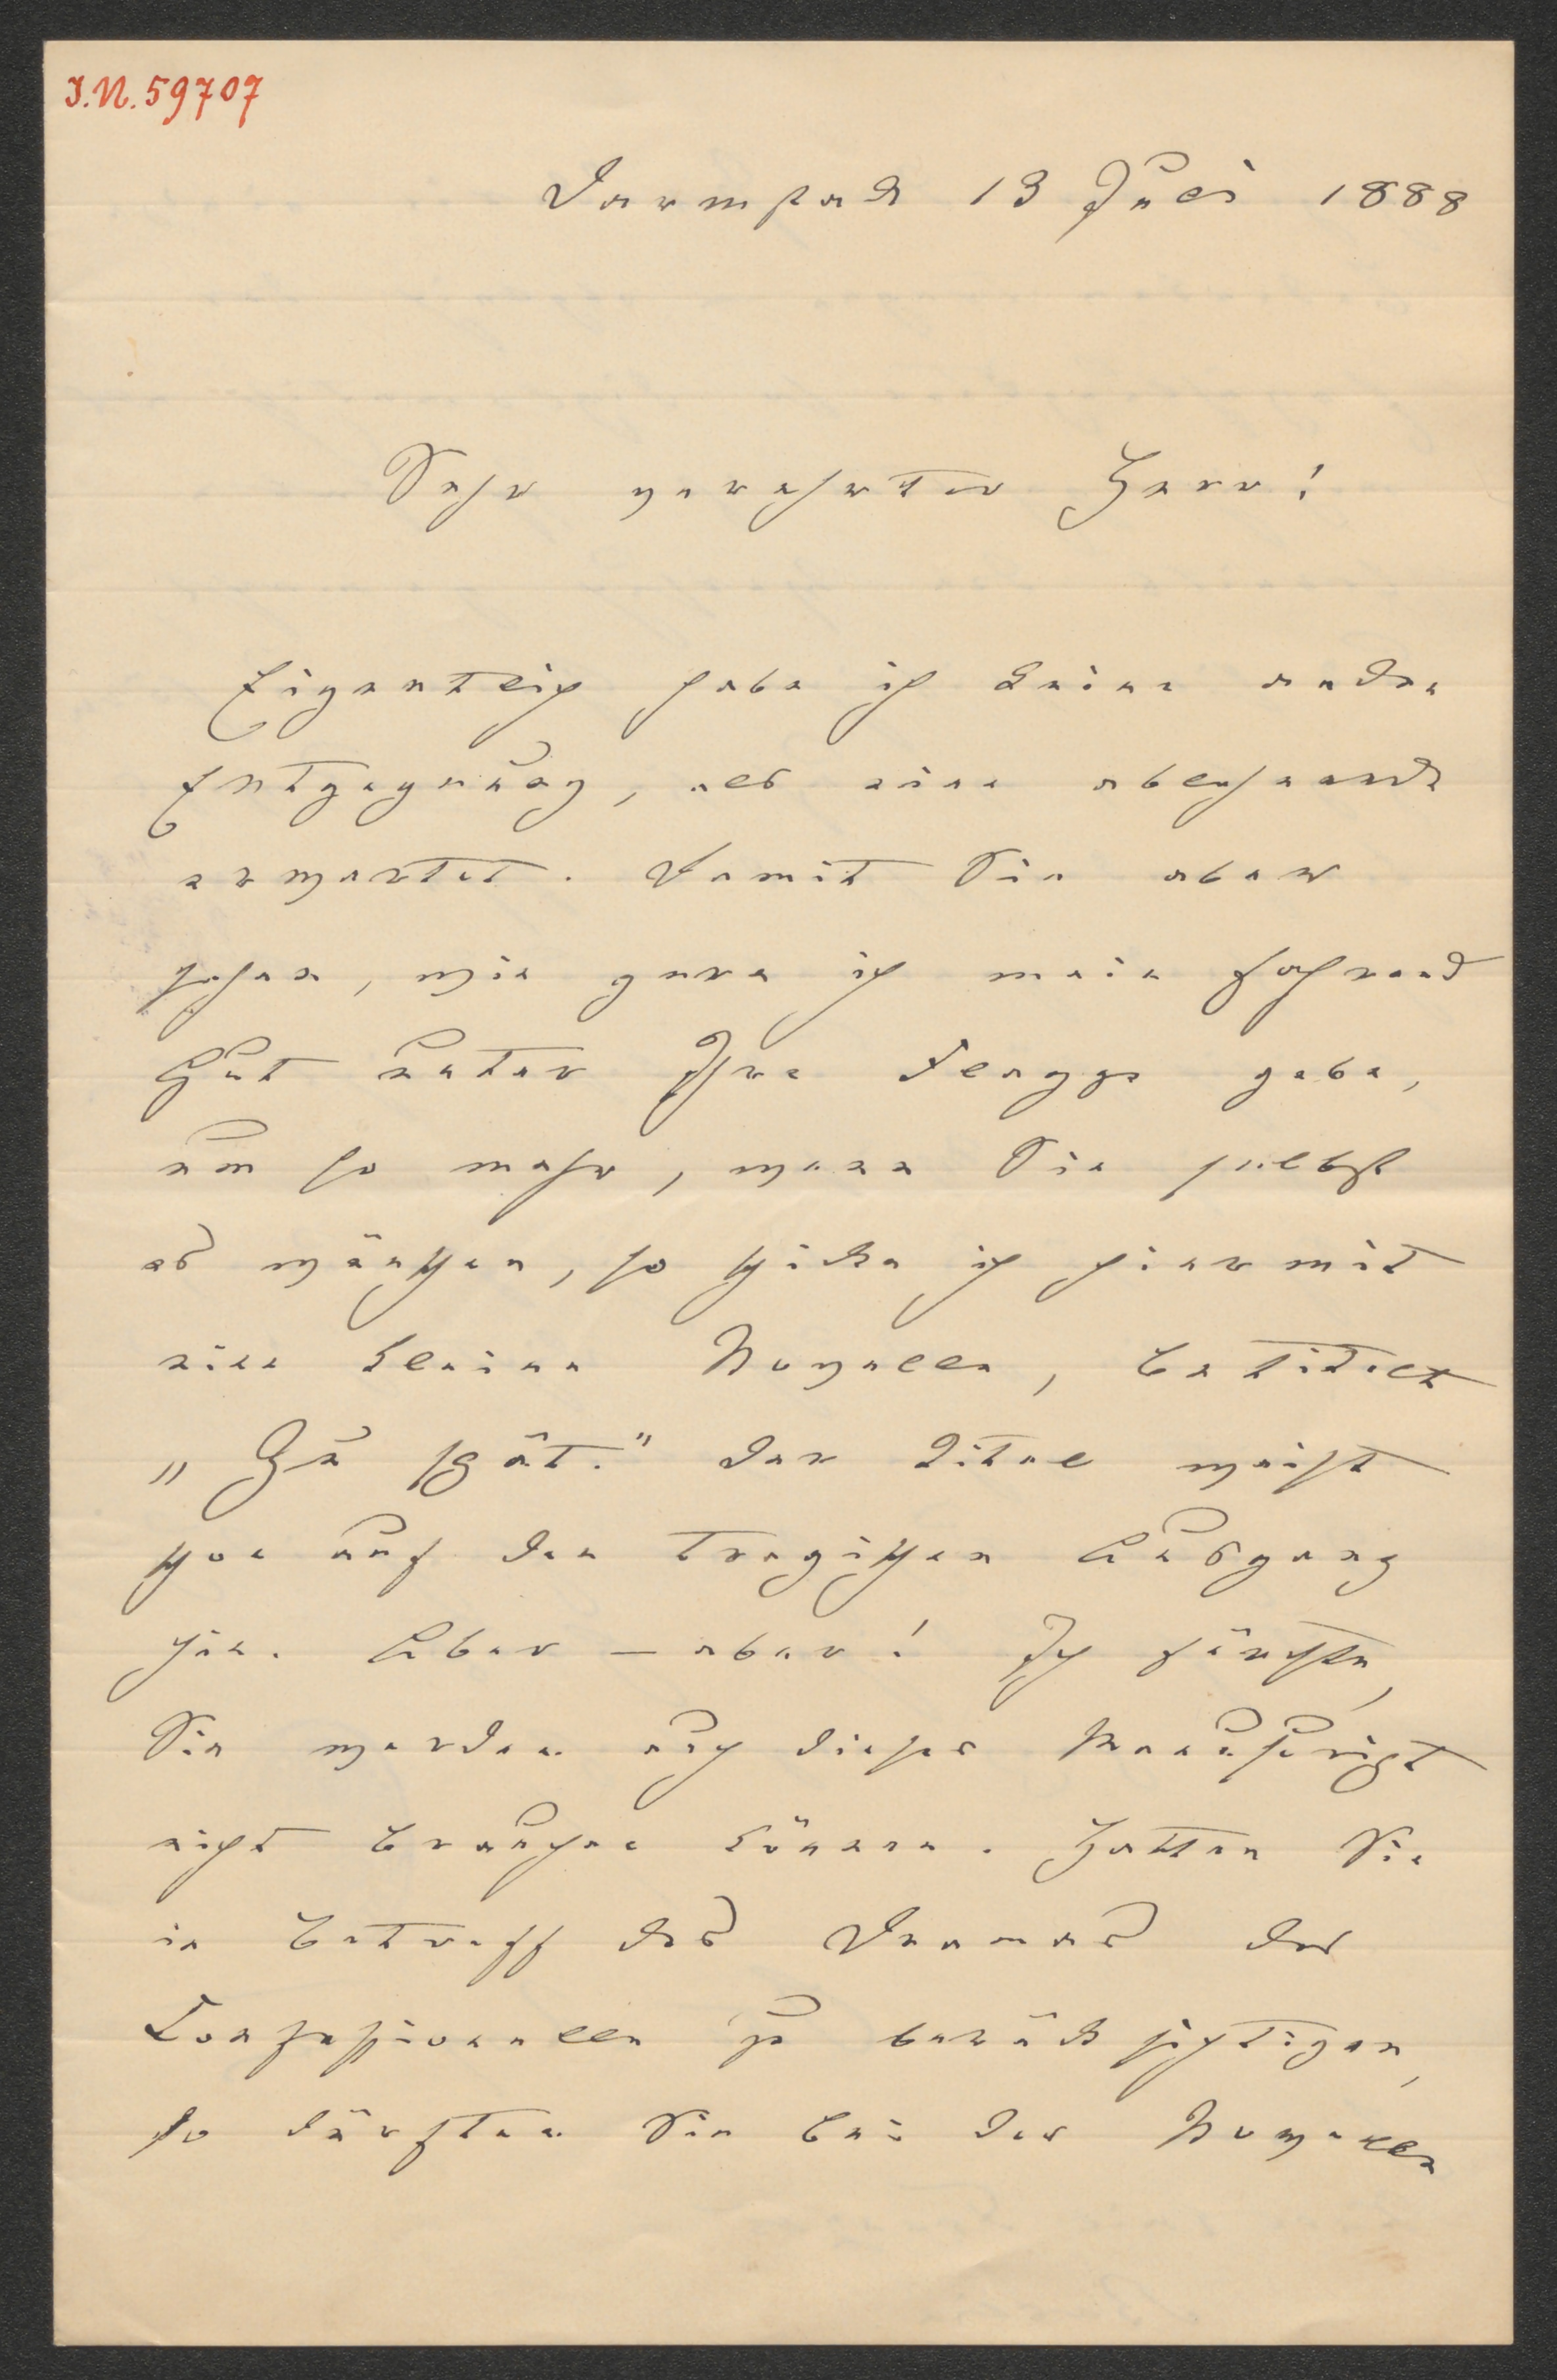 I.N. 59707
Darmstadt 13 Juli 1888
Sehr verehrter Herr!
Eigentlich habe ich keine andere
Entgegnung, als eine ablehnende
erwartet. Damit Sie aber
sehen, wie gern ich mein fahrend
Gut unter Ihre Flagge gebe,
um so mehr, wenn Sie selbst
es wünschen, so schicke ich hiermit
eine kleine Novelle, betitelt
„Zu spät." Der Titel weist
schon auf den tragischen Ausgang
hin. Aber – aber! Ich fürchte,
Sie werden auch dieses Manuskript
nicht brauchen können. Hatten Sie
in betreff des Dramas das
Confessionelle zu berücksichtigen,
so dürften Sie bei der Novelle